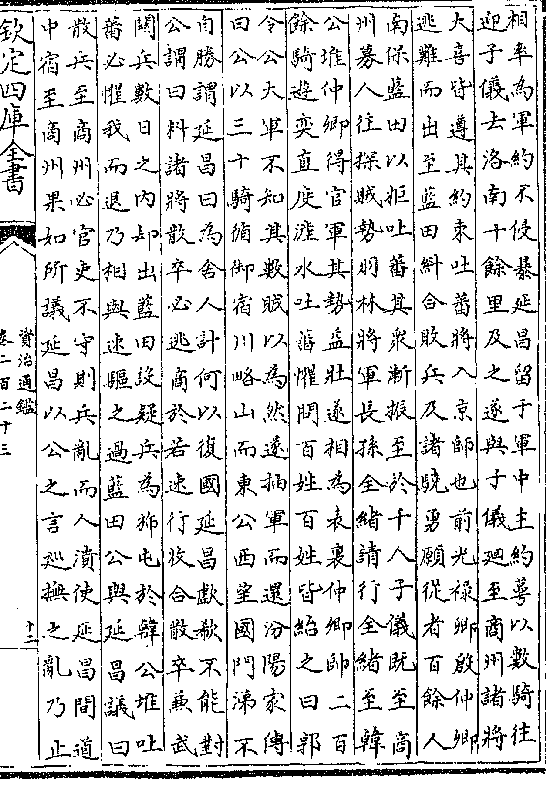 相率為軍約不侵暴延昌留于軍中主約募以數騎往
迎子儀去洛南十餘里及之遂與子儀廻至商州諸將
大喜皆遵其約束吐蕃將入京師也前光祿卿殷仲卿
逃難而出至藍田糾合敗兵及諸驍勇願從者百餘人
南保藍田以拒吐蕃其衆漸振至於千人子儀既至商
州募人往探賊勢羽林將軍長孫全緒請行全緒至韓
公堆仲卿得官軍其勢益壯遂相為表裏仲卿帥二百
餘騎遊奕直度滻水吐蕃懼問百姓百姓皆紿之曰郭
令公大軍不知其數賊以為然遂抽軍而還汾陽家傳
曰公以三十騎循御宿川略山而東公西望國門涕不
自勝謂延昌曰為舍人計何以復國延昌歔欷不能對
公謂曰料諸將散卒必逃商於若速行收合散卒兼武
關兵數日之內却出藍田設疑兵為屯於韓公堆吐
蕃必懼我而退乃相與速驅之過藍田公與延昌議曰
散兵至商州必官吏不守則兵亂而人潰使延昌間道
中宿至商州果如所議延昌以公之言廵撫之亂乃止
欽定四庫全書
資治通鑑
卷二百二十三
十二